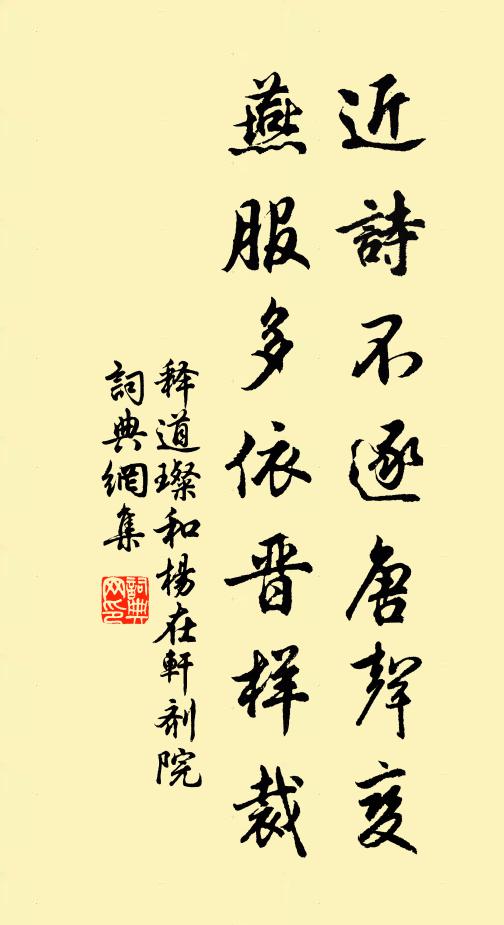 近詩不逐唐聲变
燕服多依晋样裁
释道璨和楊在軒制院
詞典網集
詞典網印